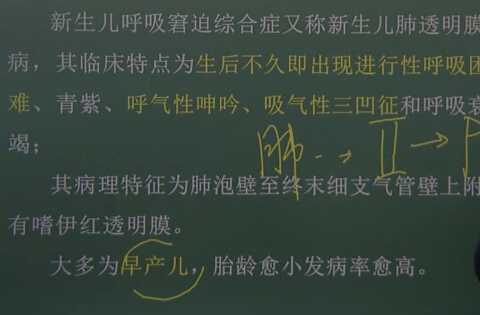 新生儿呼吸窘迫综合症又称新生儿肺透明膜
病，其临床特点为生后不久即出现进行性呼吸困
难、青紫、呼气性呻吟、吸气性三凹征和呼吸衰
竭；
肺 → II → P
其病理特征为肺泡壁至终末细支气管壁上附
有嗜伊红透明膜。
大多为早产儿，胎龄愈小发病率愈高。